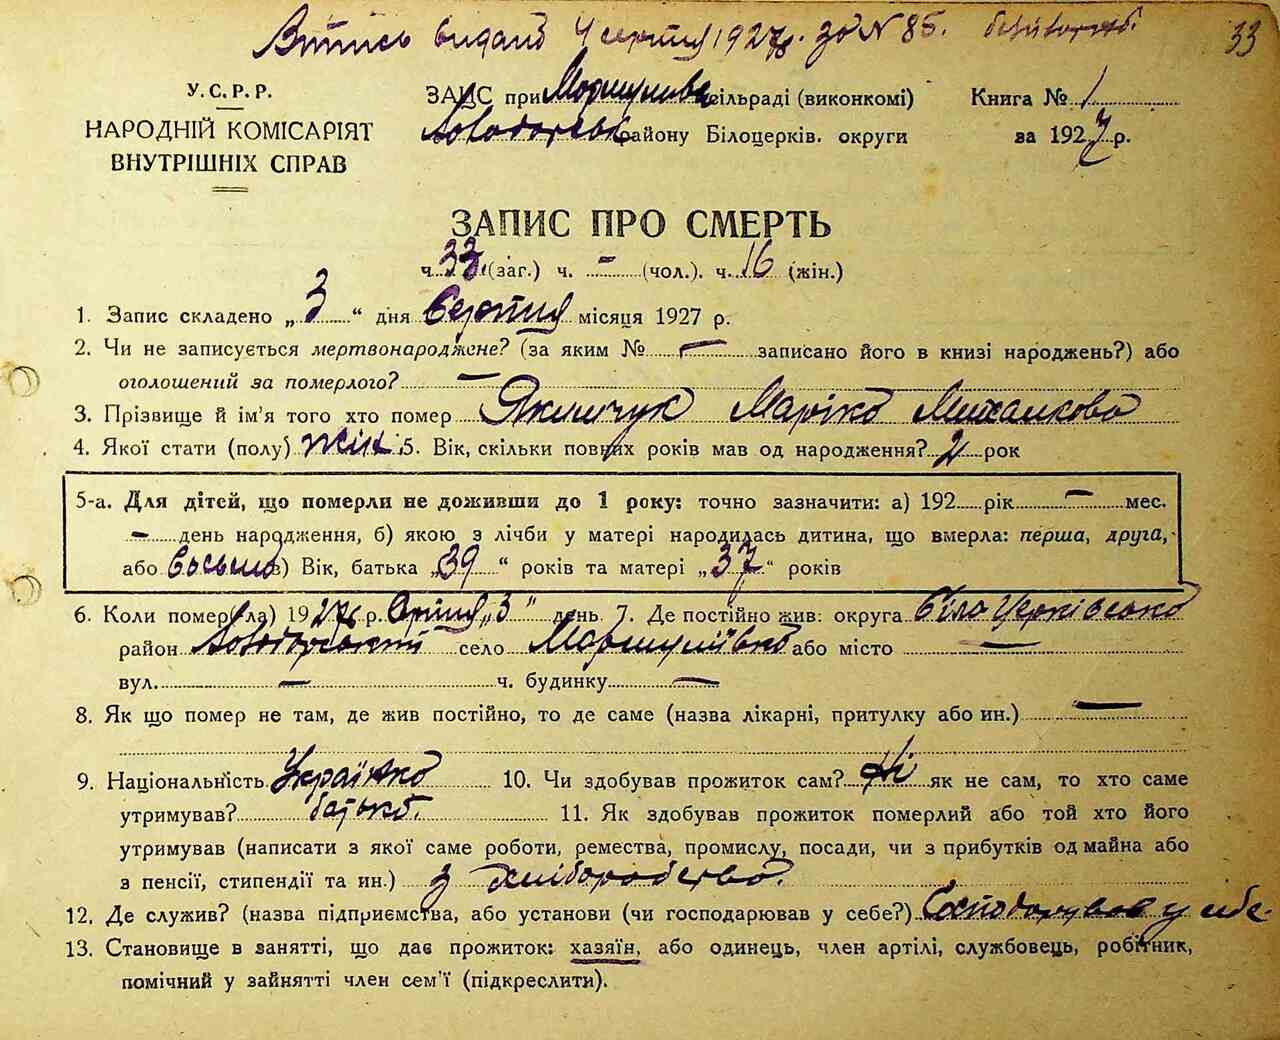 Витись видано 4 серпня 1927 р. за N 85.
33
У.С.Р.Р.
НАРОДНІЙ КОМІСАРІЯТ
ВНУТРІШНІХ СПРАВ
ЗАЦС при сільраді (виконкомі) Книга № 1
району Білоцерків. округи за 1927 р.
ЗАПИС ПРО СМЕРТЬ
ч. 33. (заг.) ч. - (чол.). ч. 16 (жін.)
1. Запис складено „ 3 “ дня Серпня місяця 1927 р.
2. Чи не записується мертвонароджене? (за яким № — записано його в книзі народжень?) або
оголошений за померлого? —
3. Прізвище й ім'я того хто помер Якимчук Маріка Михалкова
4. Якої стати (полу) жін. 5. Вік, скільки повних років мав од народження? 2 рок
5-а. Для дітей, що померли не доживши до 1 року: точно зазначити: а) 192 рік — мес.
- день народження, б) якою з лічби у матері народилась дитина, що вмерла: перша, друга,
або восьма в) Вік, батька „ 39 “ років та матері „ 37 “ років
6. Коли помер(ла) 1927 р. Серпня „ 3 “ день 7. Де постійно жив: округа Білоцерківська
район Володарський село або місто —
вул. — ч. будинку —
8. Як що помер не там, де жив постійно, то де саме (назва лікарні, притулку або ин.) —
9. Національність Українка 10. Чи здобував прожиток сам? Ні як не сам, то хто саме
утримував? батько. 11. Як здобував прожиток померлий або той хто його
утримував (написати з якої саме роботи, ремества, промислу, посади, чи з прибутків од майна або
з пенсії, стипендії та ин.) з хліборобства.
12. Де служив? (назва підприємства, або установи (чи господарював у себе?) Господарував у себе.
13. Становище в занятті, що дає прожиток: хазяїн, або одинець, член артілі, службовець, робітник,
помічний у зайнятті член сем'ї (підкреслити).